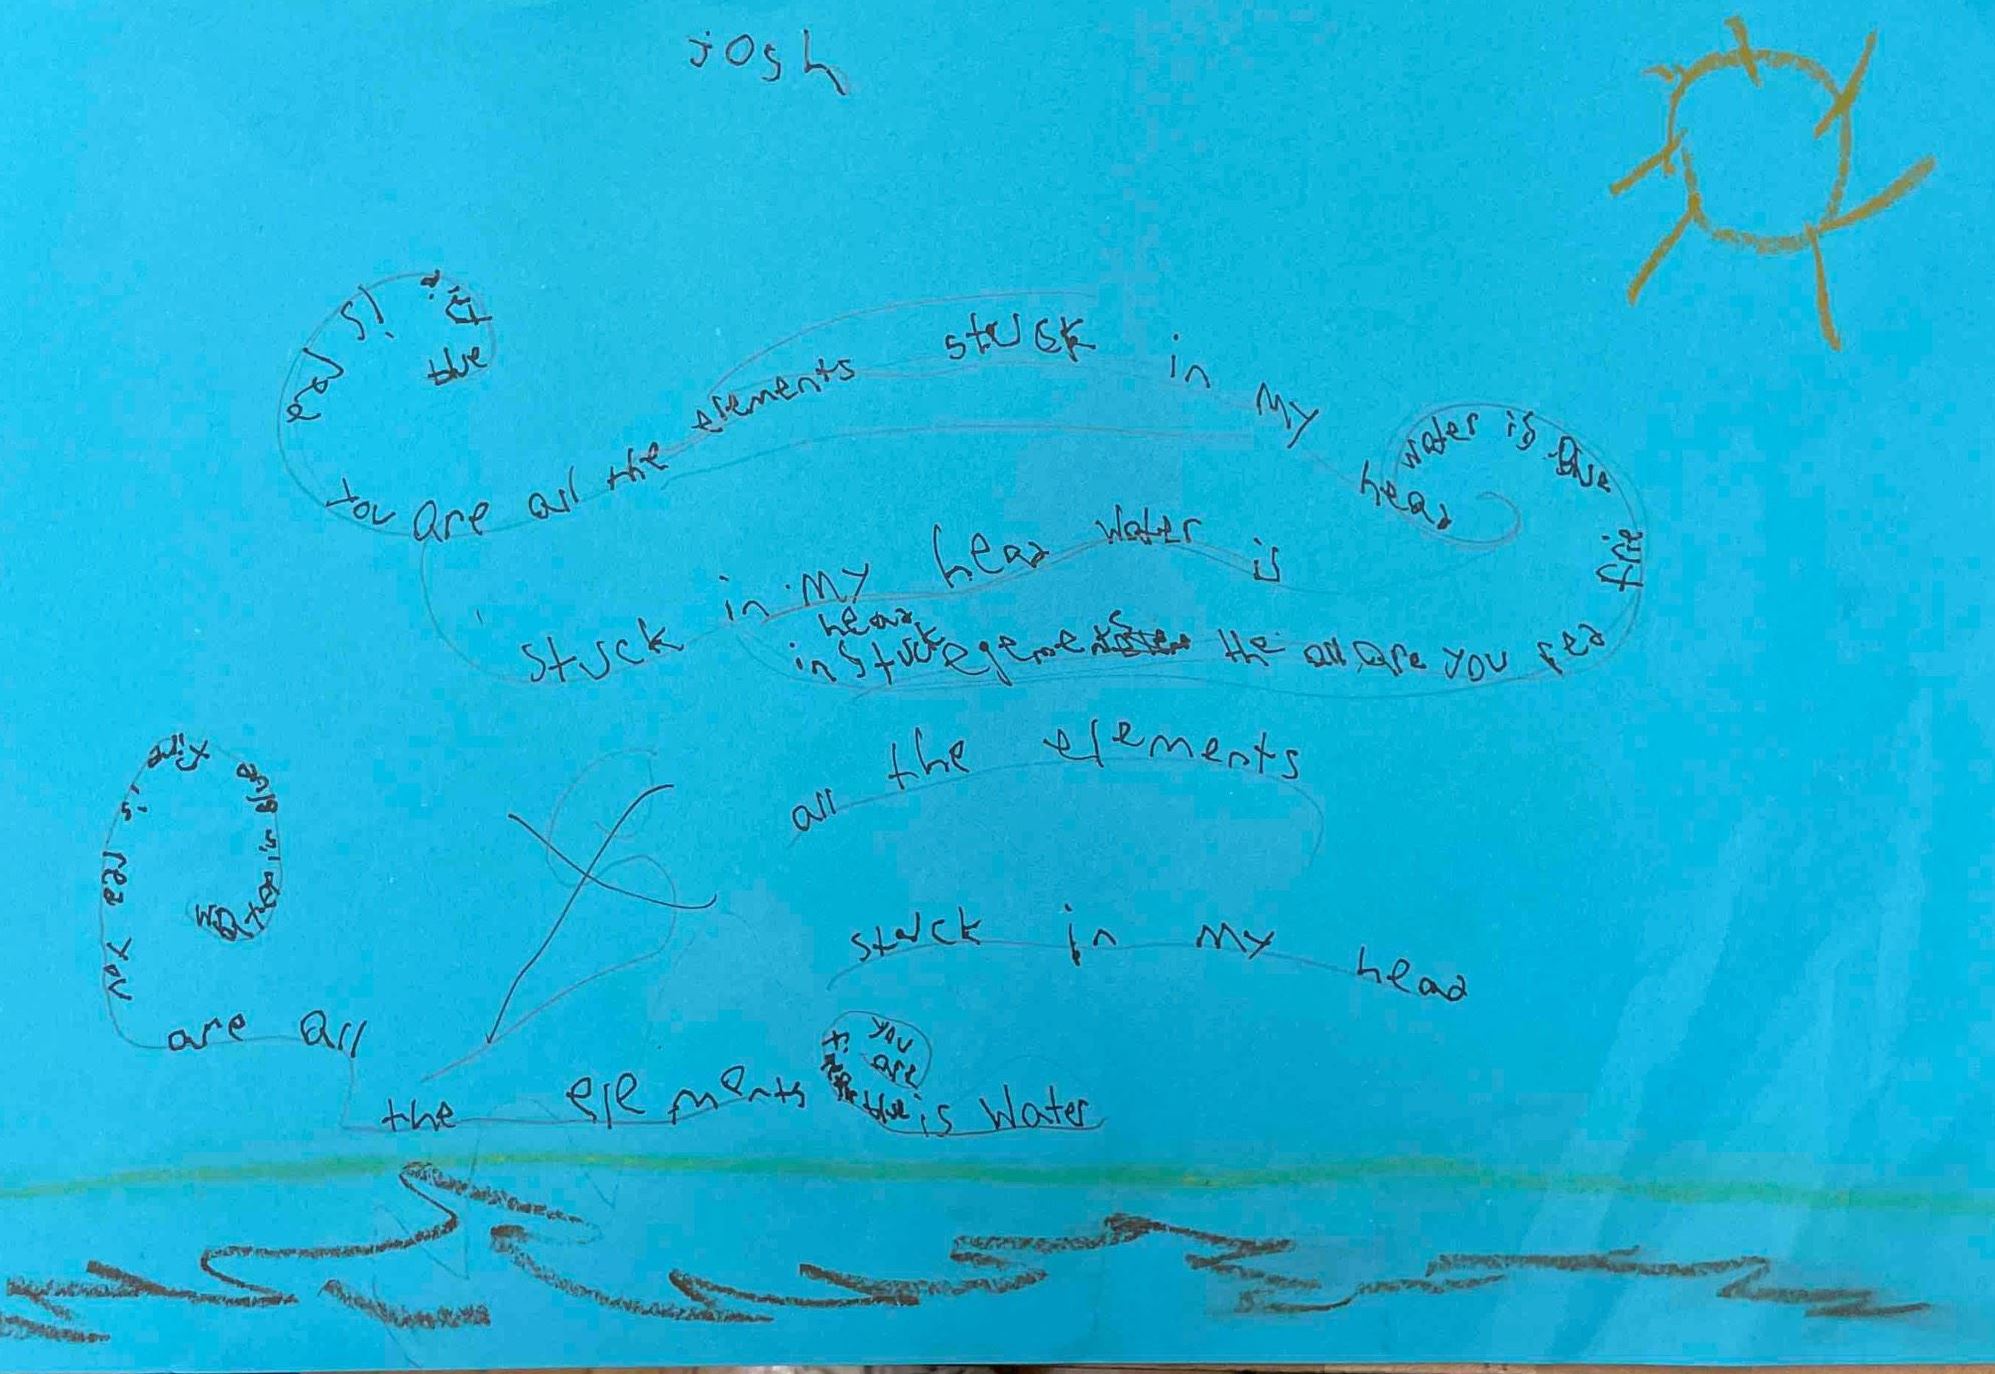 josh
blue
is red
you are all the elements stuck in my head
water is blue
fire
red
you
are
all
the
elements
in stuck
head
stuck in my head water is
all the elements
blue is water
fire is red you
are all
stuck in my head
the elements
you
are
blue is water